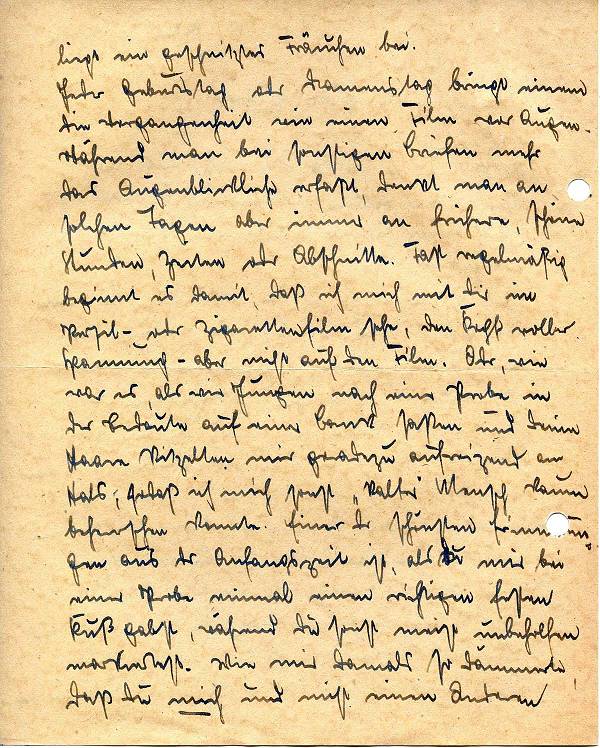 liegt ein geschnitztes Fräuchen bei.
Jeder Geburtstag oder Namenstag bringt einem
die Vergangenheit wie einen Film vor Augen.
Während man bei sonstigen Briefen mehr
das Augenblickliche erfaßt, denkt man an
solchen Tagen aber immer an frühere, schöne
Stunden, Zeiten oder Abschnitte. Fast regelmäßig
beginnt es damit, daß ich mich mit Dir im
Persil- oder Zigarettenfilm sehe, den Kopf voller
Spannung - aber nicht auf den Film. Oder, wie
war es, als wir Jungen nach einer Probe in
der Bedaute auf einer Bank saßen und Deine
Haare kitzelten mir geradezu aufreizend am
Hals; sodaß ich mich sonst "kalter" Mensch kaum
beherrschen konnte. Einer der schönsten
gen aus der Anfangszeit ist, als Du mir bei
einer Probe einmal einen richtigen festen
Kuß gabst, während Du sonst meist unbeholfen
markiertest. Wie mir damals so dämmerte,
daß Du mich und nicht einen Anderen